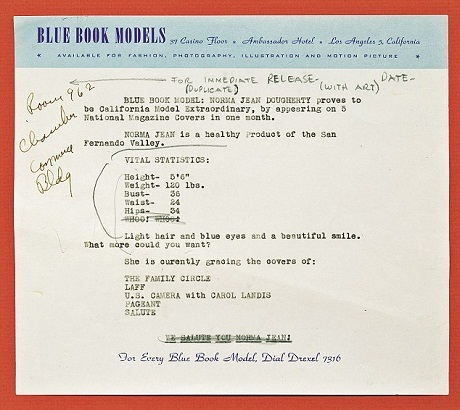 BLUE BOOK MODELS 37 Casino Floor • Ambassador Hotel • Los Angeles 5, California
AVAILABLE FOR FASHION, PHOTOGRAPHY, ILLUSTRATION AND MOTION PICTURE
FOR IMMEDIATE RELEASE- (WITH ART) DATE-
(DUPLICATE)
Room 962
Chamber
Commerce
Bldg
BLUE BOOK MODEL: NORMA JEAN DOUGHERTY proves to
be California Model Extraordinary, by appearing on 5
National Magazine Covers in one month.
NORMA JEAN is a healthy Product of the San
Fernando Valley.
VITAL STATISTICS:
Height- 5'6"
Weight- 120 lbs.
Bust- 36
Waist- 24
Hips- 34
WHOO! WHOO!
Light hair and blue eyes and a beautiful smile.
What more could you want?
She is curently gracing the covers of:
THE FAMILY CIRCLE
LAFF
U.S. CAMERA with CAROL LANDIS
PAGEANT
SALUTE
WE SALUTE YOU NORMA JEAN!
For Every Blue Book Model, Dial Drexel 7316